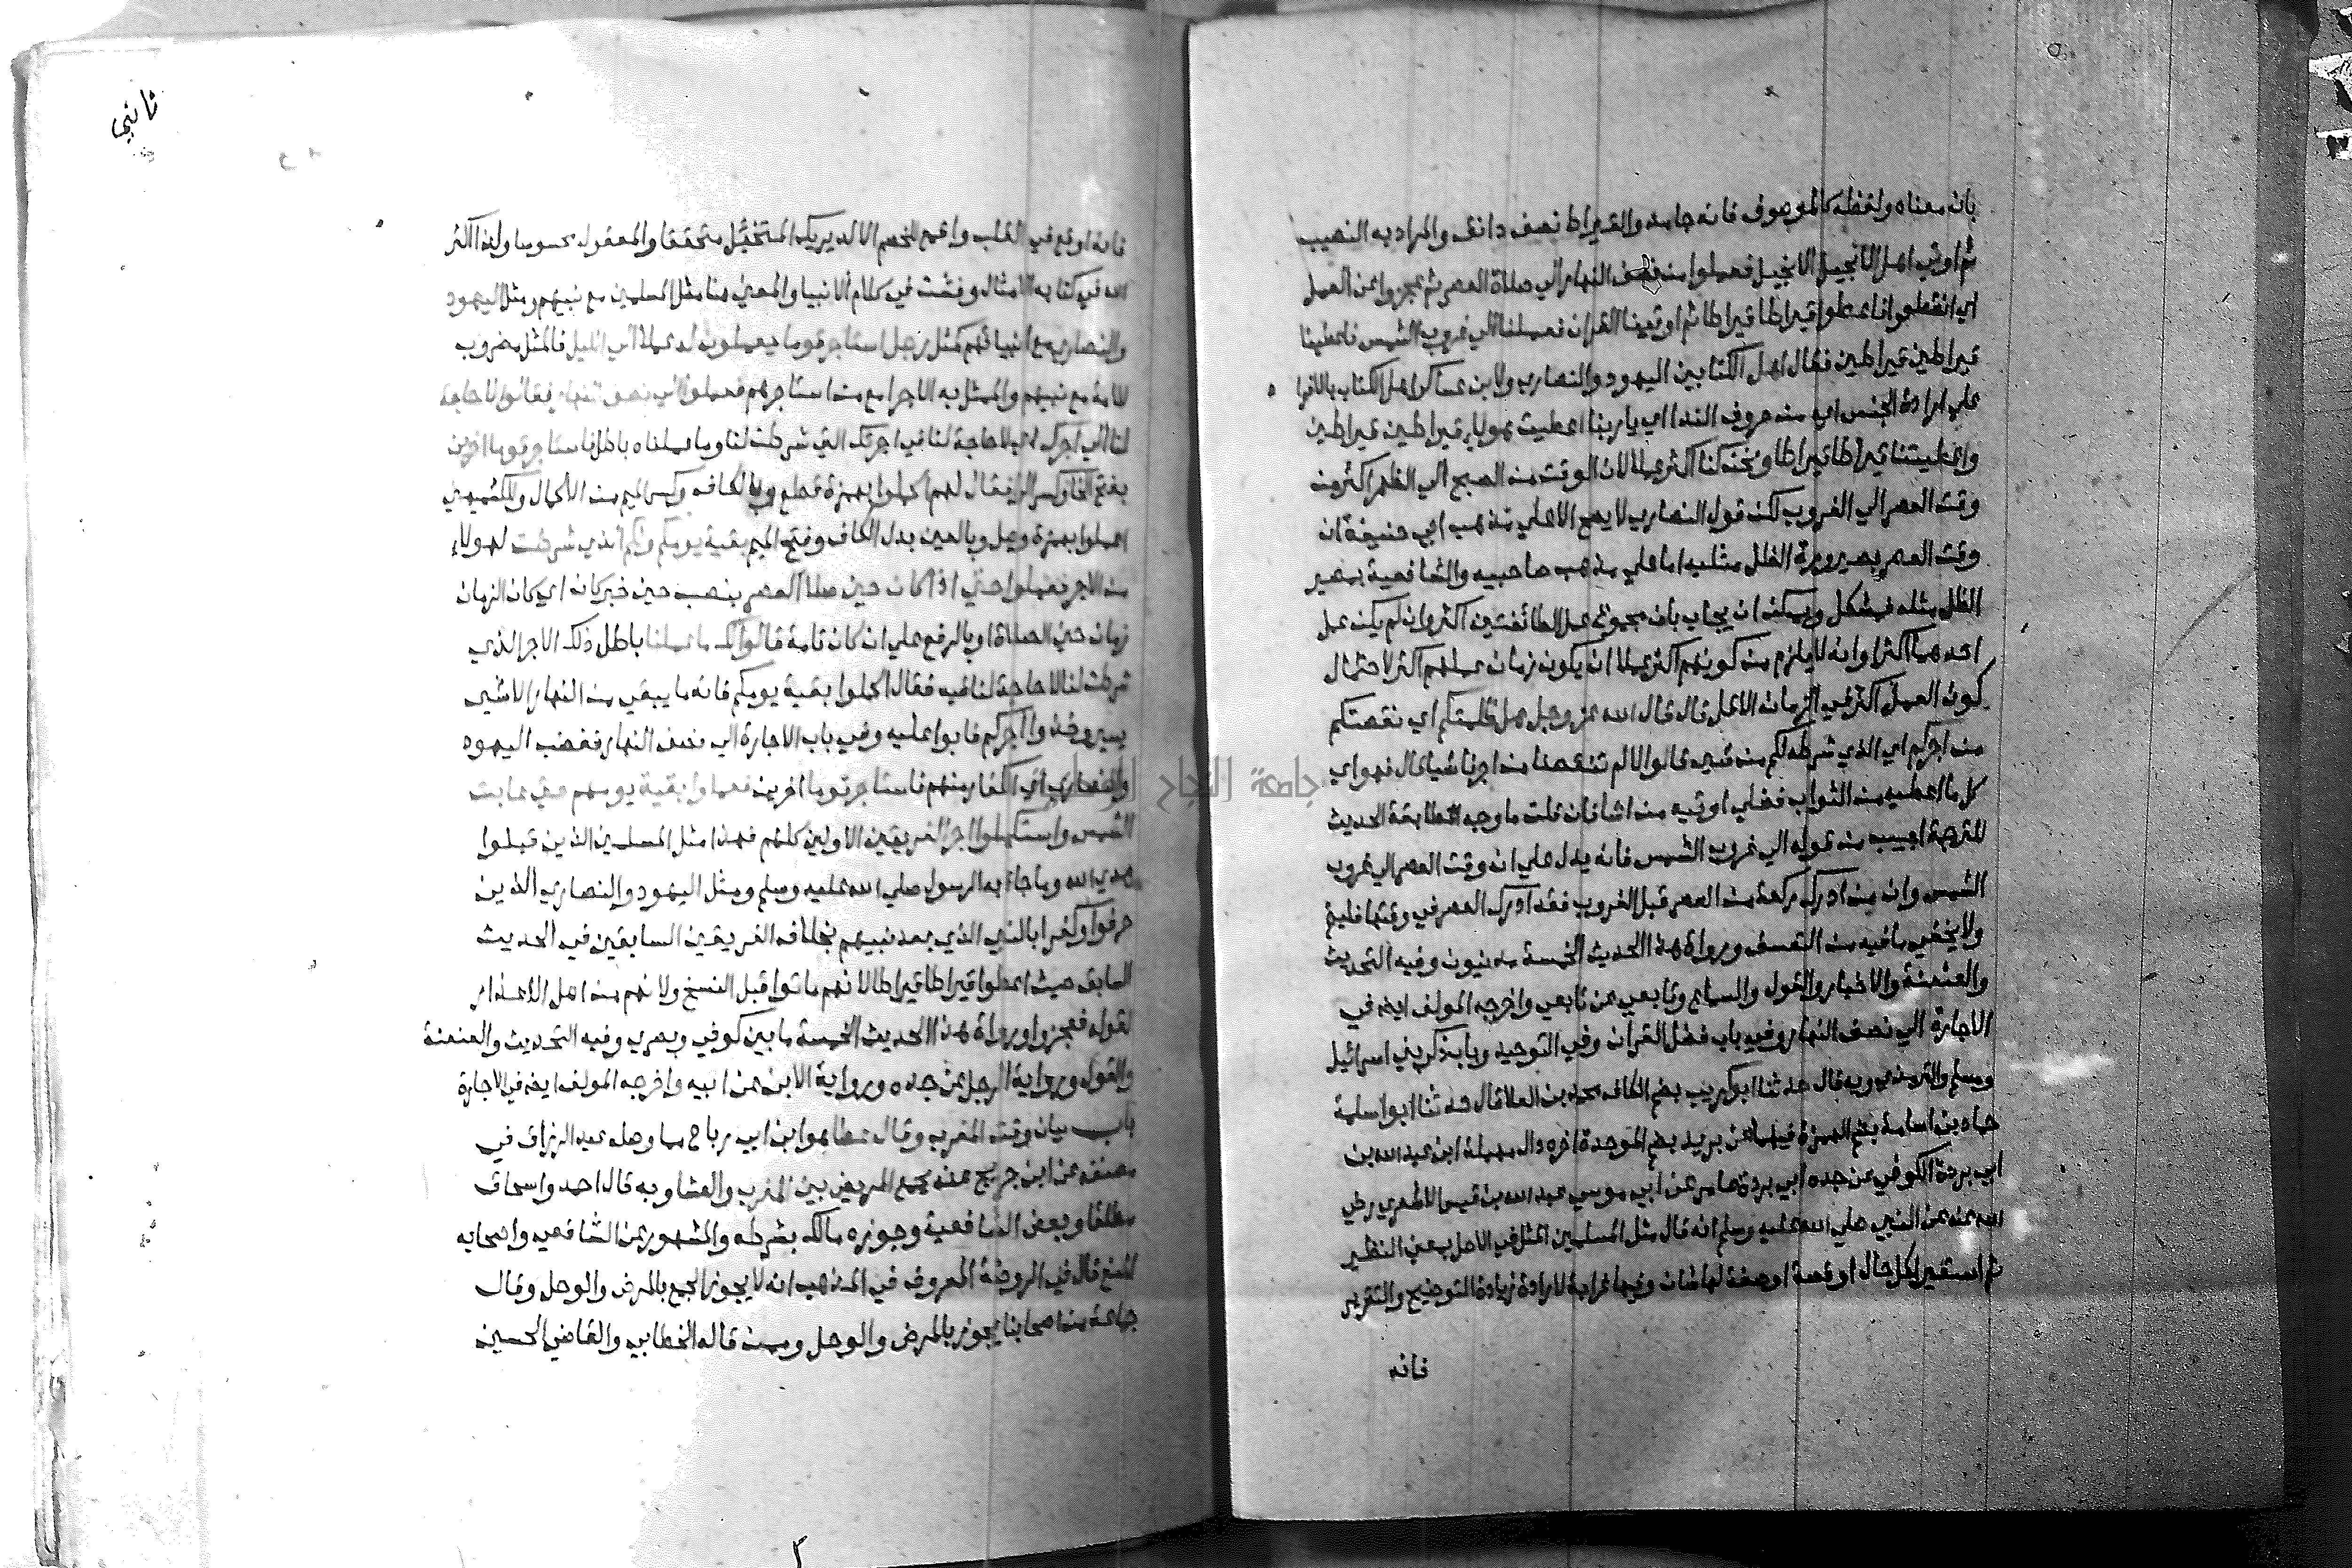 بان معناه ولفظه كالموصوف فانه جامد والقيراط نصف دانق والمراد به النصيب
ثم اوتي اهل الانجيل الانجيل فعملوا من نصف النهار الي صلاة العصر ثم عجزوا عن العمل
اي انقطعوا فاعطوا قيراطا قيراطا ثم اوتينا القران فعملنا الي غروب الشمس فاعطينا
قيراطين قيراطين فقال اهل الكتابين اليهود والنصاري ولابن عساكر اهل الكتاب بالافراد
علي ارادة الجنس اي من حروف الندا اي يا ربنا اعطيت هولاء قيراطين قيراطين
واعطيتنا قيراطا قيراطا ونحن كنا اكثر عملا لان الوقت من الصبح الي الظهر اكثر من
وقت العصر الي الغروب لكن قول النصاري لا يصح الا علي مذهب ابي حنيفة ان
وقت العصر بصيرورة الظل مثليه اما علي مذهب صاحبيه والشافعية بمصير
الظل مثله فمشكل ويمكن ان يجاب بان مجموع عمل الطائفتين اكثر وان لم يكن عمل
احدهما اكثر او انه لا يلزم من كونهم اكثر عملا ان يكون زمان عملهم اكثر لاحتمال
كون العمل اكثر في الزمان الاقل قال قال الله عز وجل هل ظلمتكم اي نقصتكم
من اجركم اي الذي شرطه لكم من شي قالوا لا لم تنقصنا من اجرنا شيا قال فهو اي
كل ما اعطيه من الثواب فضلي اوتيه من اشا فان قلت ما وجه مطابقة الحديث
للترجمة اجيب من قوله الي غروب الشمس فانه يدل علي ان وقت العصر الي غروب
الشمس وان من ادرك ركعة من العصر قبل الغروب فقد ادرك العصر في وقتها فليتم
ولا يخفي ما فيه من التعسف ورواة هذا الحديث الخمسة مدنيون وفيه التحديث
والعنعنة والاخبار والقول والسماع وتابعي عن تابعي واخرجه المولف ايضا في
الاجارة الي نصف النهار وفي باب فضل القران وفي التوحيد وباب ذكر بني اسرائيل
ومسلم والترمذي وبه قال حدثنا ابو كريب بضم الكاف محمد بن العلا قال حدثنا ابو اسامة
حماد بن اسامة بضم الهمزة فيهما عن بريد بضم الموحدة اخره دال مهملة ابن عبد الله بن
ابي بردة الكوفي عن جده ابي بردة عامر عن ابي موسي عبد الله بن قيس الاشعري رضي
الله عنه عن النبي صلي الله عليه وسلم انه قال مثل المسلمين المثل في الاصل بمعني النظير
ثم استعير لكل حال او قصة او صفة لها شان وفيها غرابة لارادة زيادة التوضيح والتقرير
فانه
ثاني
فانه اوقع في القلب واقمع للخصم الالد يريك المتخيل متحققا والمعقول محسوسا ولذا اكثر
الله في كتابه الامثال وفشت في كلام الانبيا والمعني هنا مثل المسلمين مع نبيهم ومثل اليهود
والنصاري مع انبيائهم كمثل رجل استاجر قوما يعملون له عملا الي الليل فالمثل مضروب
للامة مع نبيهم والممثل به الاجرا مع من استاجرهم فعملوا الي نصف النهار فقالوا لا حاجة
لنا الي اجرك اي لا حاجة لنا في اجرتك التي شرطت لنا وما عملناه باطل فاستاجر قوما اخرين
بفتح الخا وكسر الرا فقال لهم اكملوا بهمزة قطع وبالكاف وكسر الميم من الاكمال وللكشميهني
اعملوا بهمزة وصل وبالعين بدل الكاف وفتح الميم بقية يومكم ولكم الذي شرطت لهولاء
من الاجر فعملوا حتي اذا كان حين صلاة العصر بنصب حين خبر كان اي كان الزمان
زمان حين الصلاة او بالرفع علي ان كان تامة قالوا لك ما عملنا باطل ذلك الاجر الذي
شرطت لنا لا حاجة لنا فيه فقال اكملوا بقية يومكم فانه ما يبقي من النهار الا شي
يسير وخذوا اجركم فابوا عليه وفي باب الاجارة الي نصف النهار فغضب اليهود
والنصاري اي الكفار منهم فاستاجر قوما اخرين فعملوا بقية يومهم حتي غابت
الشمس واستكملوا اجر الفريقين الاولين كلهم فهذا مثل المسلمين الذين قبلوا
هدي الله وما جاء به الرسول صلي الله عليه وسلم ومثل اليهود والنصاري الذين
حرفوا وكفروا بالنبي الذي بعد نبيهم بخلاف الفريقين السابقين في الحديث
السابق حيث اعطوا قيراطا قيراطا لانهم ماتوا قبل النسخ ولانهم من اهل الاعذار
لقوله فعجزوا ورواة هذا الحديث الخمسة ما بين كوفي وبصري وفيه التحديث والعنعنة
والقول ورواية الرجل عن جده ورواية الابن عن ابيه واخرجه المولف ايضا في الاجارة
باب بيان وقت المغرب وقال عطا هو ابن ابي رباح مما وصله عبد الرزاق في
مصنفه عن ابن جريج عنه يجمع المريض بين المغرب والعشا وبه قال احمد واسحاق
مطلقا وبعض الشافعية وجوزه مالك بشرطه والمشهور عن الشافعي واصحابه
المنع قال في الروضة المعروف في المذهب انه لا يجوز الجمع بالمرض والوحل وقال
جماعة من اصحابنا يجوز بالمرض والوحل وممن قاله الخطابي والقاضي الحسين
جامعة النجاح